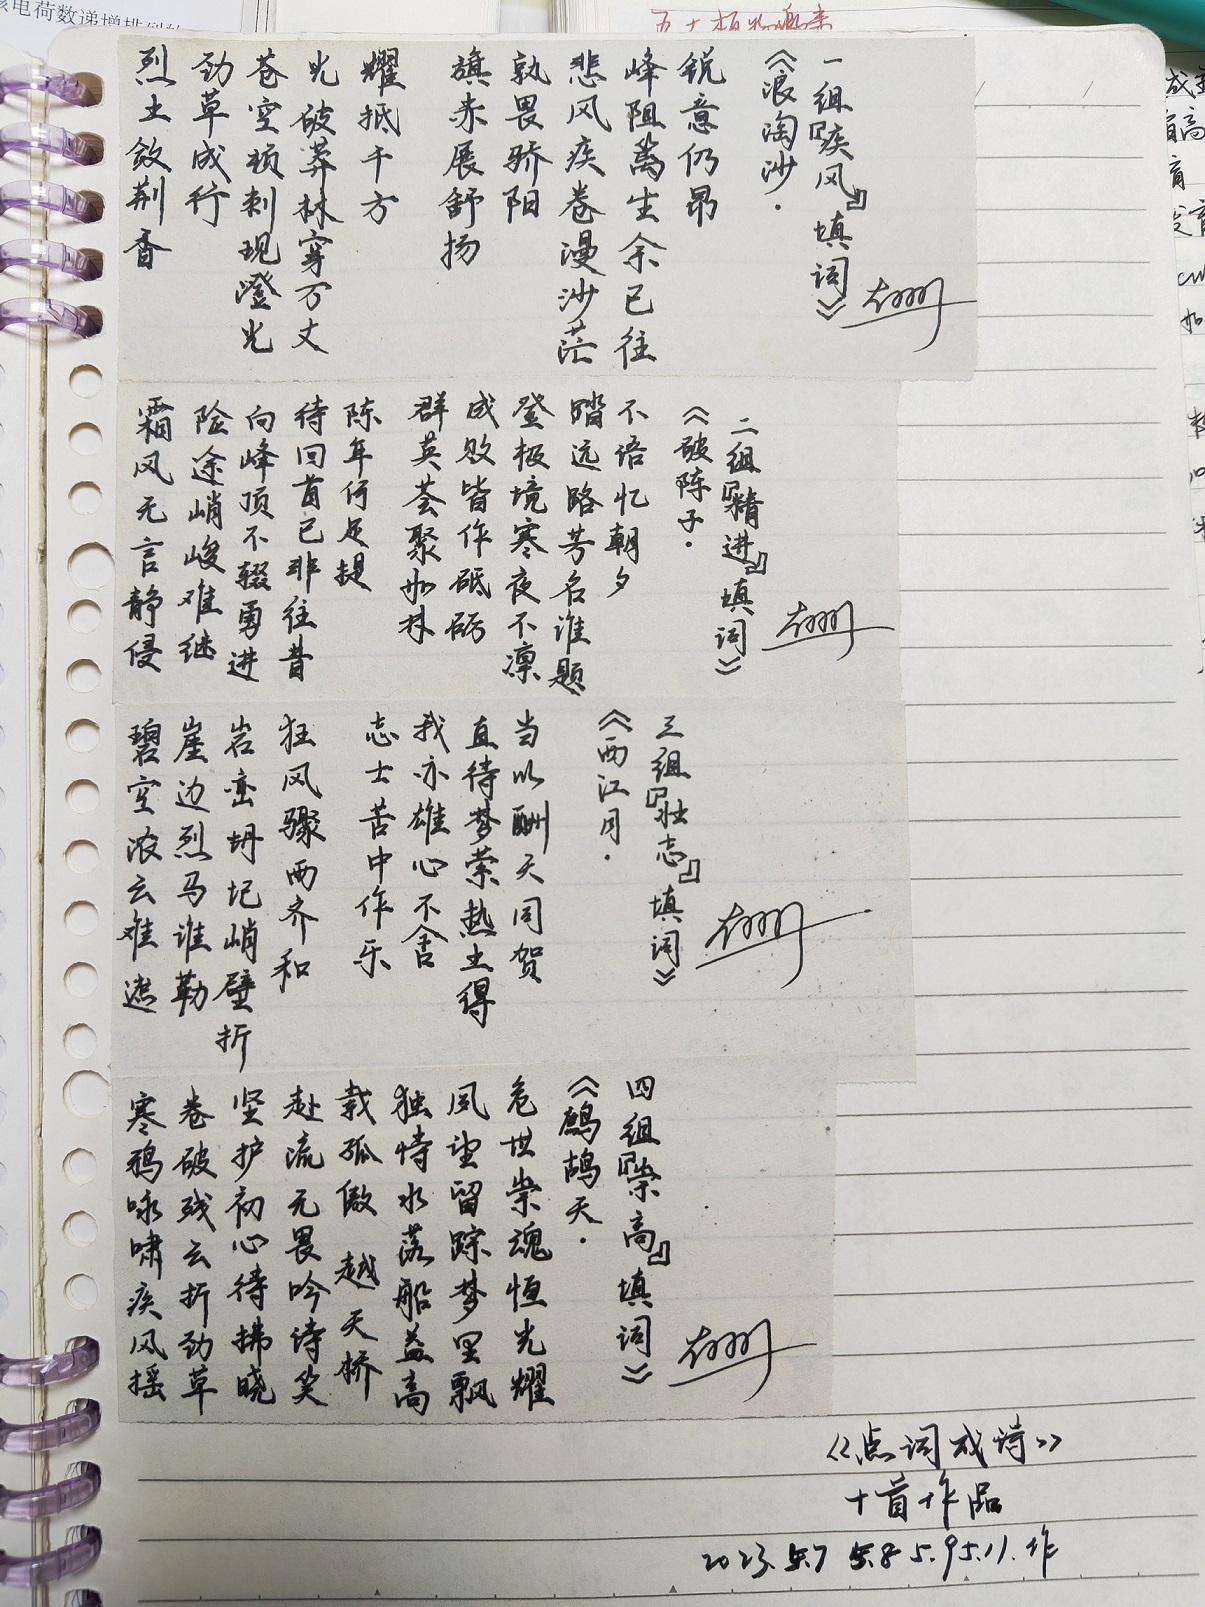 一组『疾风』填词》
《浪淘沙·
锐意仍昂
峰阻万生余已往
悲风疾卷漫沙茫
孰畏骄阳
旗赤展舒扬
耀抵千方
光破莽林穿万丈
苍空顿刺现澄光
劲草成行
烈土敛荆香
二组『精进』填词》
《破陈子·
不语忆朝夕
踏远路芳名谁题
登极境寒夜不凛
成败皆作砥砺
群英荟聚如林
陈年何足提
待回首已非往昔
向峰顶不辍勇进
险途峭峻难继
霜风无言静侵
三组『壮志』填词》
《西江月·
当以酬天同贺
直待梦萦热土得
我亦雄心不舍
志士苦中作乐
狂风骤雨齐和
岩峦坍圮峭壁折
崖边烈马谁勒
碧空浓云难遮
四组『崇高』填词》
《鹧鸪天·
危世崇魂恒光耀
风望留踪梦里飘
独恃水落船益高
载孤傲 越天桥
赴流无畏吟诗笑
坚护初心待拂晓
卷破残云折劲草
寒鸦咏啸疾风摇
《点词成诗》
十首作品
2023.5.7 5.8 5.9 5.11.作